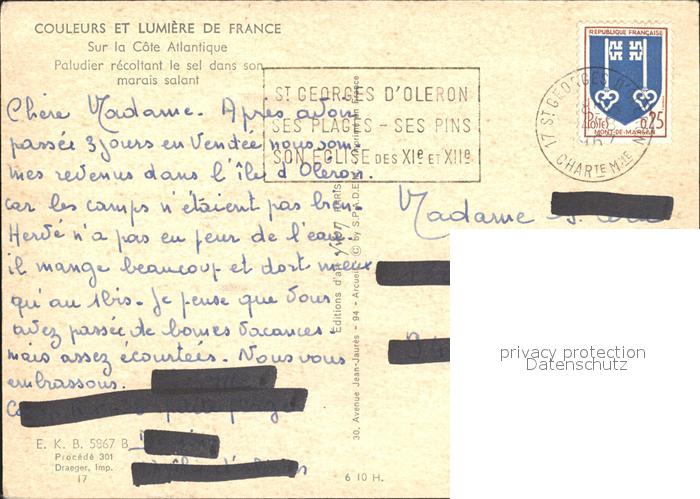 COULEURS ET LUMIÈRE DE FRANCE
Sur la Côte Atlantique
Paludier récoltant le sel dans son
marais salant
Chère Madame. Après avoir
passée 3 jours en Vendée nous som-
mes revenus dans l'île d'Oleron.
car les camps n'étaient pas bien.
Hervé n'a pas eu peur de l'eau.
il mange beaucoup et dort mieux
qu'au 1bis. Je pense que vous
avez passée de bonnes vacances.
mais assez écourtées. Nous vous
embrassons.
E. K. B. 5867 B
Procédé 301
Draeger, Imp.
17
ST GEORGES D'OLERON
SES PLAGES - SES PINS
SON EGLISE DES XIe ET XIIe
Editions d'art
PARIS
30, Avenue Jean-Jaurès - 94 - Arcueil
© by S.P.A.D.E.M.
Imprimé en France
6 10 H.
RÉPUBLIQUE FRANÇAISE
Postes
0,25
MONT-DE-MARSAN
17 ST GEORGES D'OLERON
CHARTE MME
Madame
privacy protection
Datenschutz